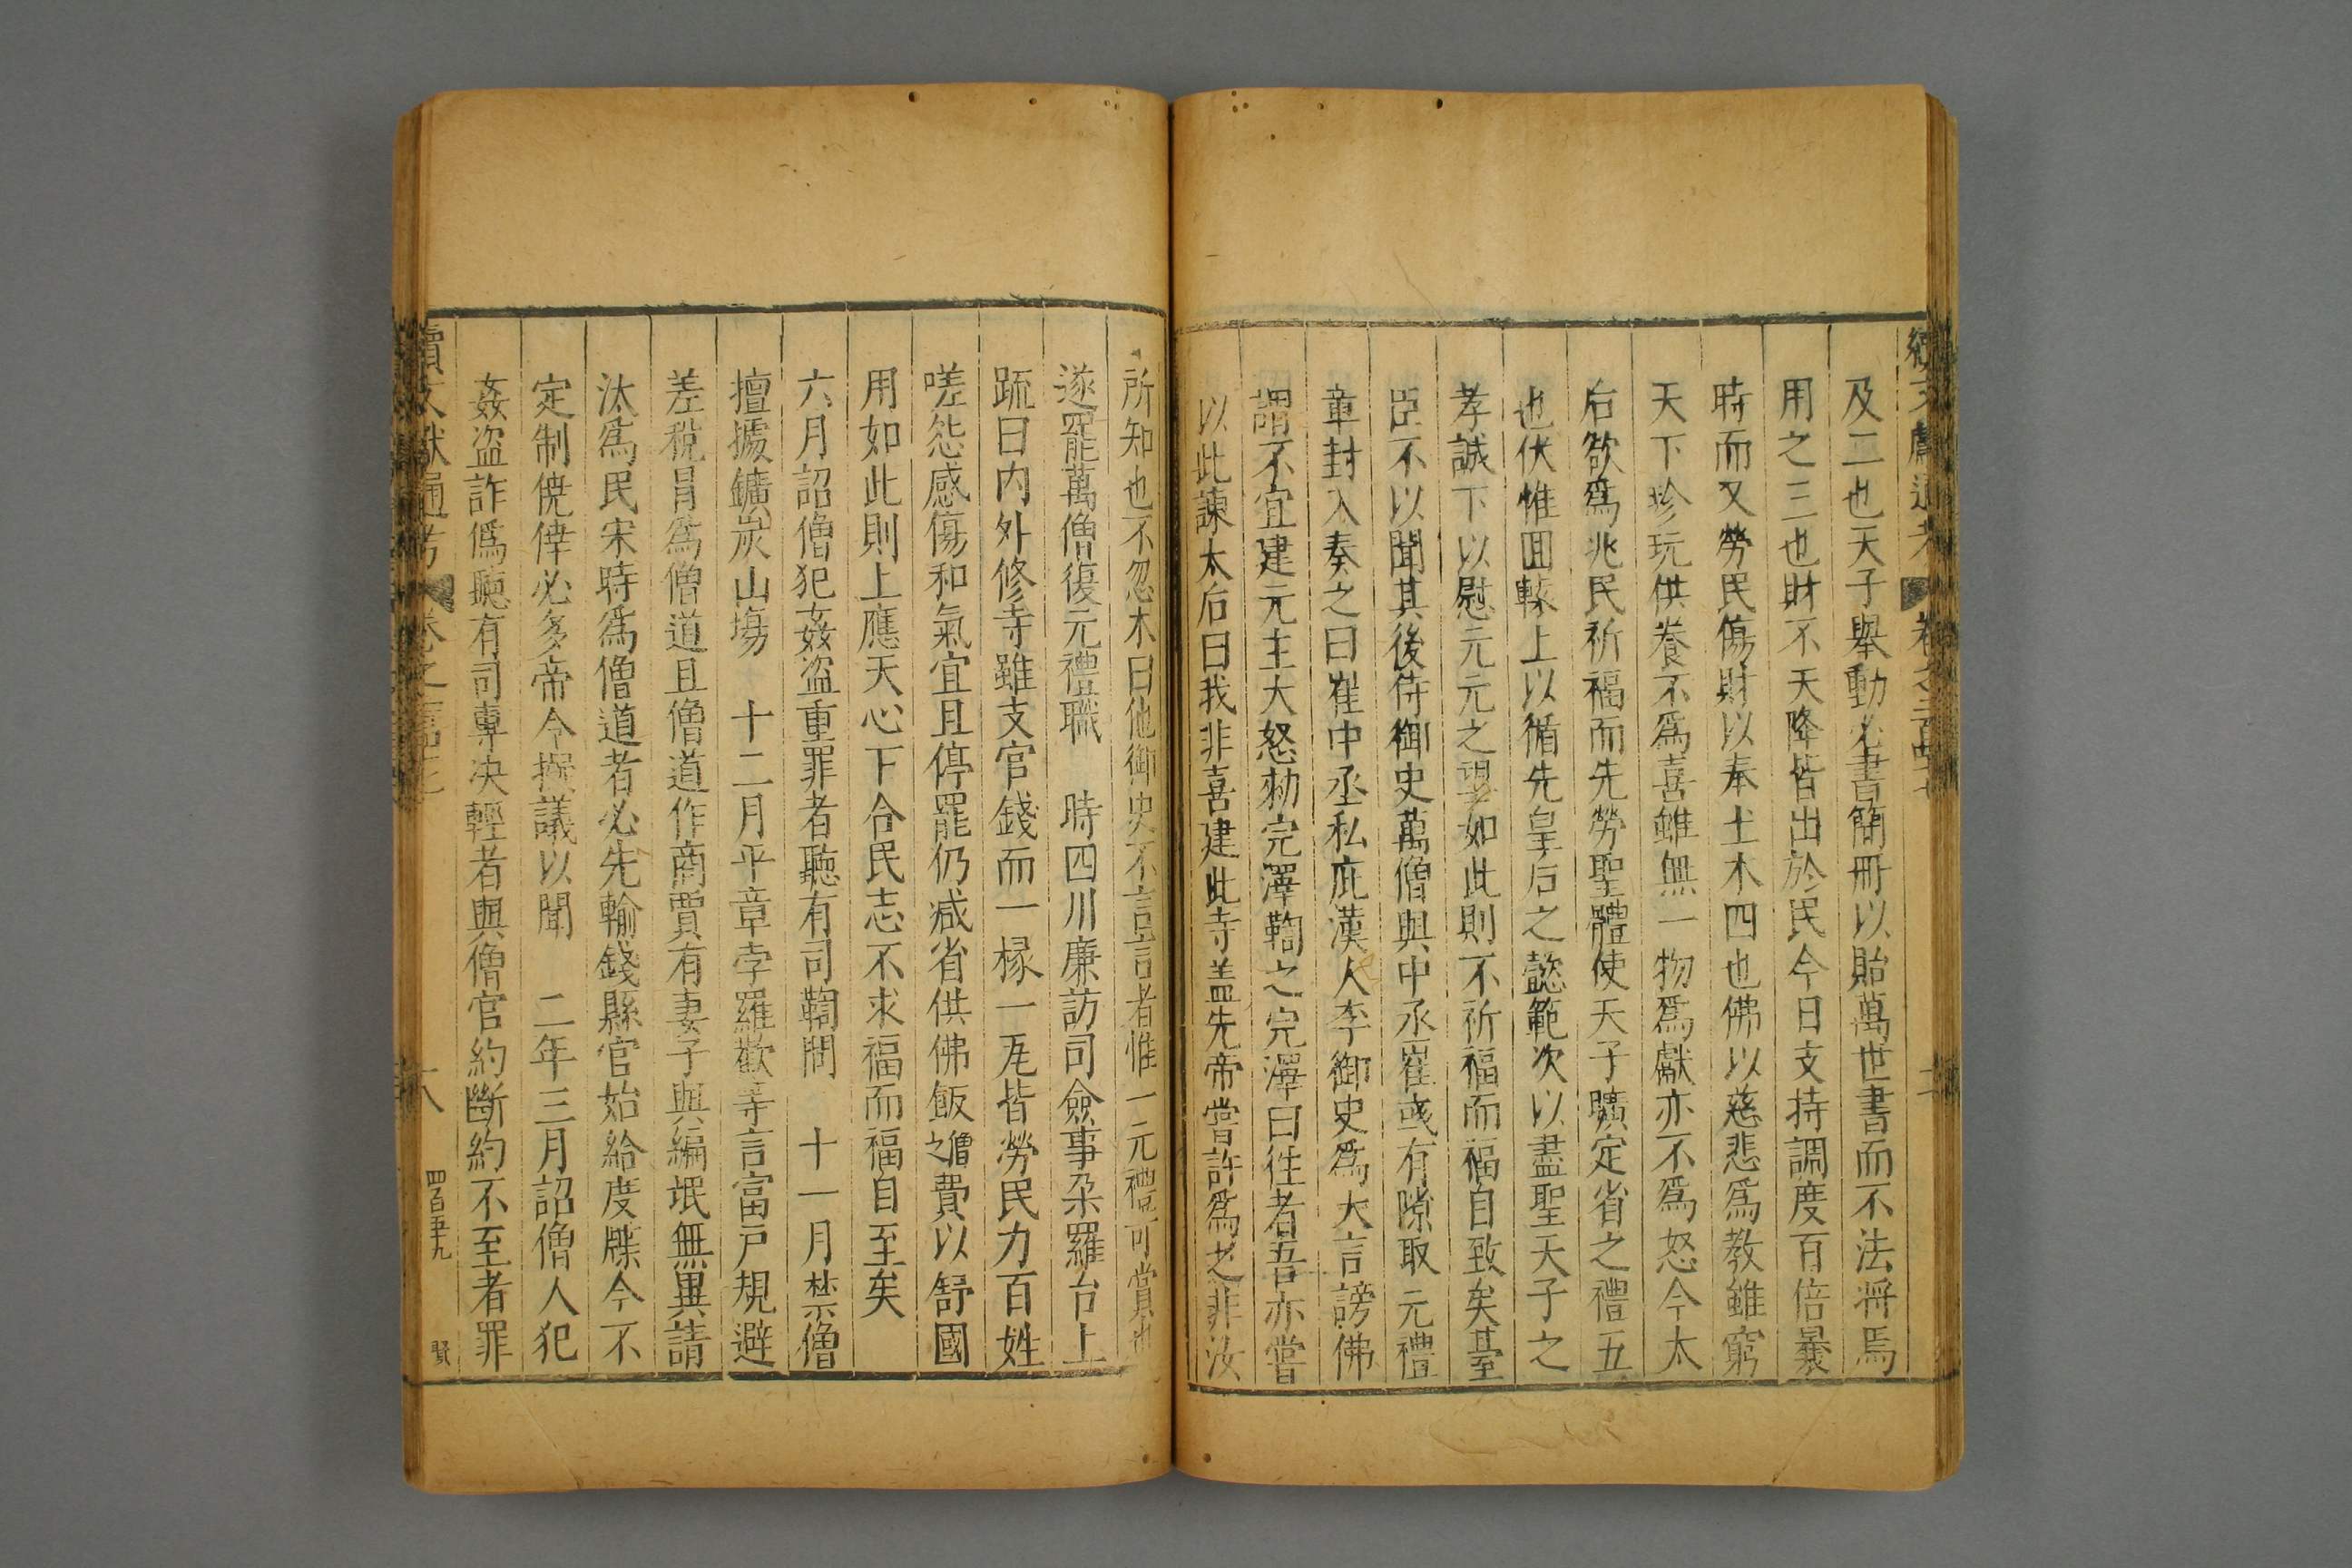 及二也天子舉動必書簡冊以貽萬世書而不法將焉
用之三也財不天降皆出於民今日支持調度百倍曩
時而又勞民傷財以奉土木四也佛以慈悲爲教雖窮
天下珍玩供養不爲喜雖無一物爲獻亦不爲怒今太
后欲爲兆民祈福而先勞聖體使天子曠定省之禮五
也伏惟囬轅上以循先皇后之懿範次以盡聖天子之
孝誠下以慰元元之望如此則不祈福而福自致矣臺
臣不以聞其後侍御史萬僧與中丞崔彧有隙取元禮
章封入奏之曰崔中丞私庇漢人李御史爲大言謗佛
謂不宜建元主大怒勑完澤鞫之完澤曰徃者吾亦嘗
以此諫太后曰我非喜建此寺盖先帝嘗許爲之非汝
所知也不忽木曰他御史不言言者惟一元禮可賞也
遂罷萬僧復元禮職 時四川廉訪司僉事朶羅台上
䟽曰内外修寺雖支官錢而一椽一瓦皆勞民力百姓
嗟怨感傷和氣宜且停罷仍减省供佛飯僧之費以舒國
用如此則上應天心下合民志不求福而福自至矣
六月詔僧犯姦盗重罪者聽有司鞫問 十一月禁僧
擅據鑛炭山塲 十二月平章孛羅歡等言富戸規避
差稅冐爲僧道且僧道作商賈有妻子與編氓無異請
汰爲民宋時爲僧道者必先輸錢縣官始給度牒今不
定制僥倖必多帝令撰議以聞 二年三月詔僧人犯
姦盗詐僞聽有司專决輕者與僧官約斷約不至者罪
續文獻通考 卷之
四百五十九
賢